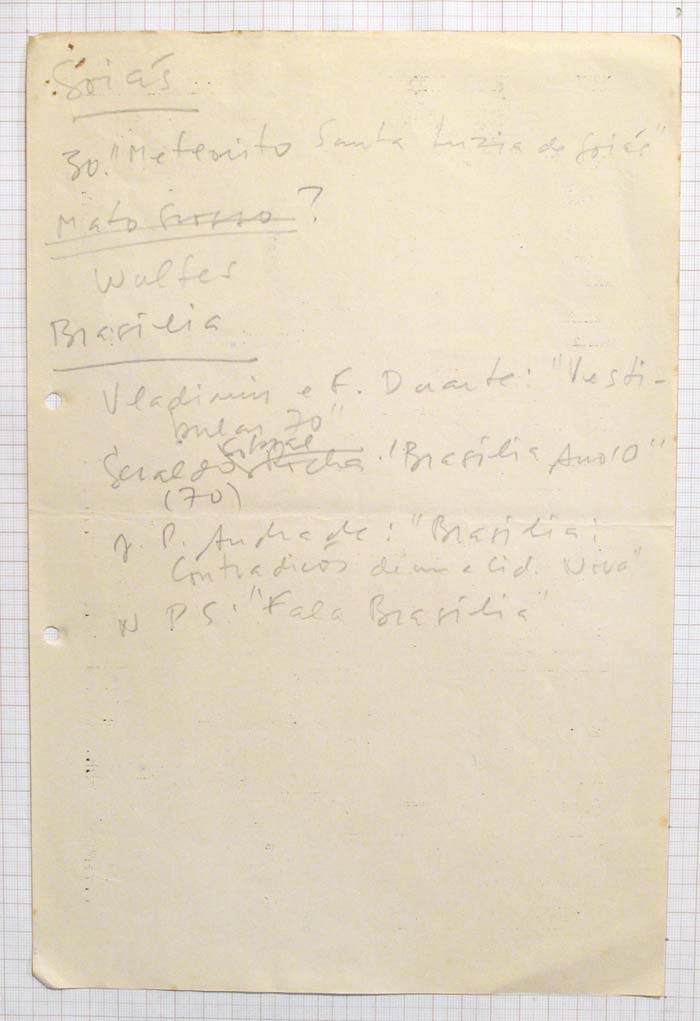 Goiás
30. "Meteorito Santa Luzia de Goiás"
Mato Grosso ?
Wulfes
Brasília
Vladimir e F. Duarte: "Vesti-
bular 70"
Sobral
Geraldo Rocha: "Brasília Ano 10"
(70)
J. P. Andrade: "Brasília:
Contradições de uma Cid. Nova"
N P S: "Fala Brasília"